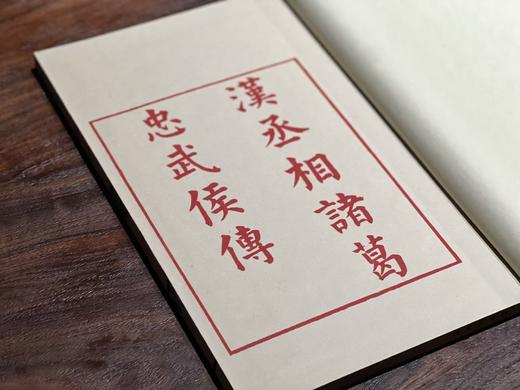 漢丞相諸葛
忠武侯傳